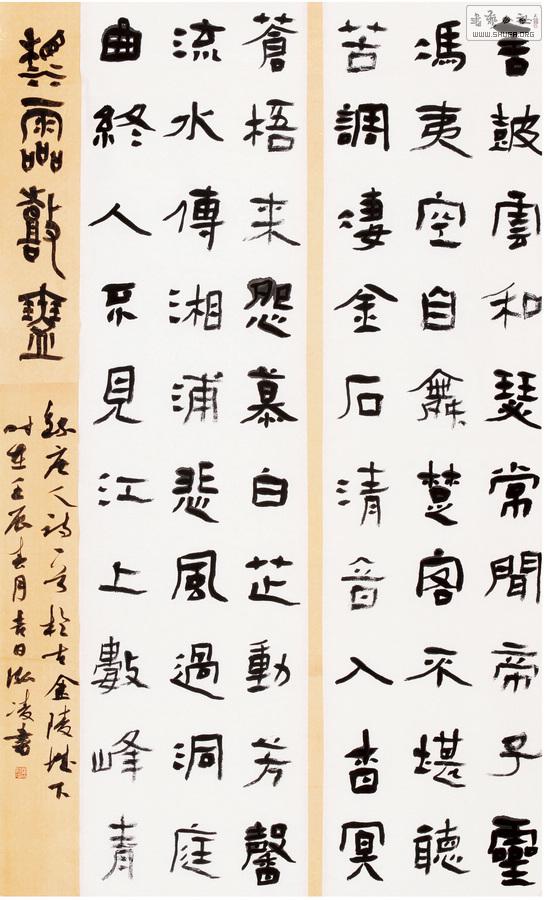 善鼓雲和瑟常聞帝子靈
馮夷空自舞楚客不堪聽
苦調淒金石清音入杳冥
蒼梧来怨慕白芷動芳馨
流水傳湘浦悲風過洞庭
曲終人不見江上數峰青
湘靈鼓瑟
錄唐人詩一首於古金陵城下
时在壬辰春月吉日泓凌書
WWW.SHUFA.ORG